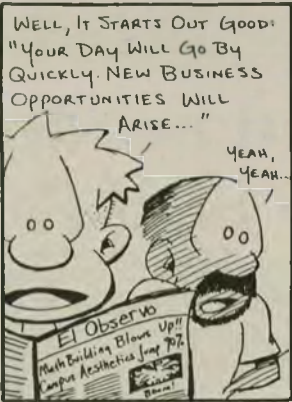 WELL, IT STARTS OUT GOOD:
"YOUR DAY WILL GO BY
QUICKLY. NEW BUSINESS
OPPORTUNITIES WILL
ARISE..."
YEAH,
YEAH...
El Observo
Math Building Blows Up!!
Campus Aesthetics Jump 70%
Boom!